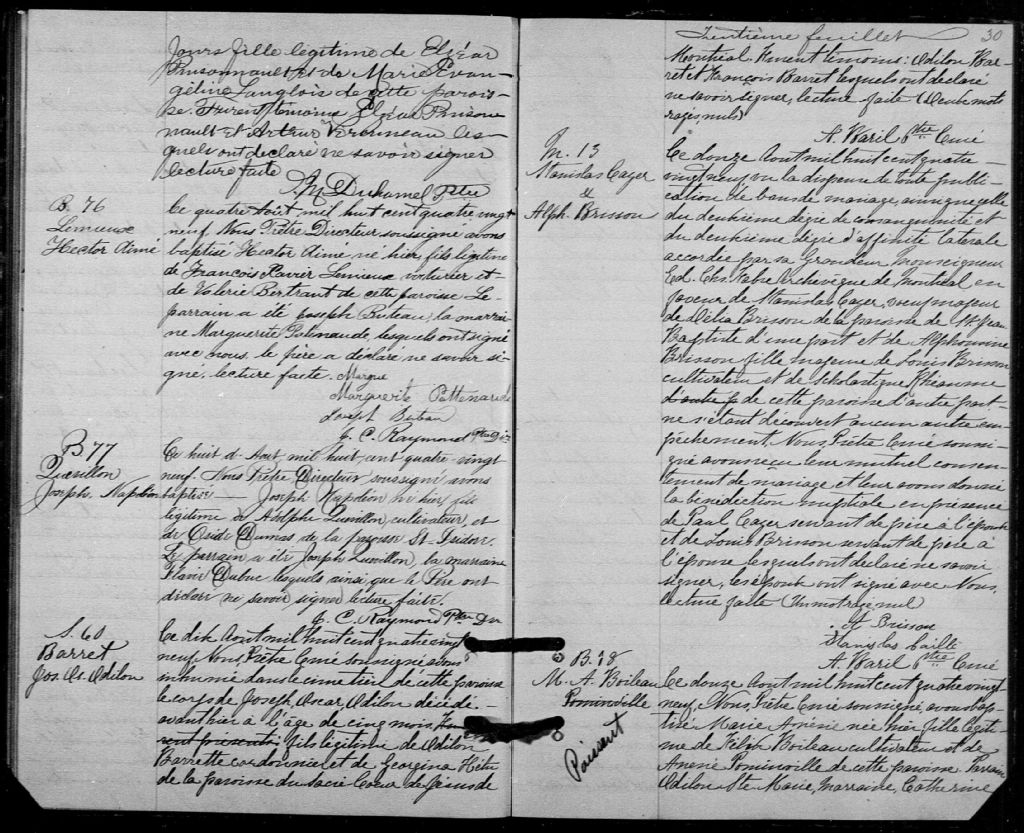 jours fille legitime de Elzéar
Pinsonnault et de Marie Evan-
géline Langlois de cette parois-
se. Furent témoins Elzéar Pinson-
nault et Arthur Véronneau les-
quels ont déclaré ne savoir signer
lecture faite
A. M. Duhamel Ptre
B. 76
Lemieux
Hector Aimé
Le quatre Août mil huit cent quatre vingt
neuf Nous Prêtre Directeur soussigné avons
baptisé Hector Aimé né hier, fils légitime
de François Xavier Lemieux voiturier et
de Valerie Bertrant de cette paroisse Le
parrain a été Joseph Buteau, la marrai
ne Marguerite Patenaude, lesquels ont signé
avec nous. le père a déclaré ne savoir si-
gné. lecture faite. Margue
Marguerite Pattenaude
Joseph
G. C. Raymond Ptre Dir
B 77
Quevillon
Joseph Napoléon
Ce huit d Août mil huit cent quatre-vingt
neuf. Nous Prêtre Directeur soussigné avons
baptisé — Joseph Napoléon né hier, fils
légitime de Adolphe Quevillon, cultivateur, et
de Dumas de la paroisse St-Isidore.
Le parrain a été Joseph Quevillon, la marraine
Flavie Dubuc lesquels ainsi que le Père ont
déclaré ne savoir signer lecture faite.
G. C. Raymond Ptre Dir
S. 60
Barret
Jos. Os. Odilon
Ce dix Août mil huit cent quatre vingt
neuf, Nous Prêtre Curé soussigné avons
inhumé dans le cimetière de cette paroisse
le corps de Joseph, Oscar, Odilon décédé
avant hier à l'âge de cinq mois, Fu
rent présents fils légitime de Odilon
Barrette cordonnier et de Georgina Hétu
de la paroisse du Sacré Coeur de Jésus de
Trentième feuillet 30
Montréal. Furent témoins: Odilon Bar-
ret et François Barret lesquels ont déclaré
ne savoir signer, lecture faite (Deux mots
rayés, nuls)
A. Baril Ptre Curé
M. 13
Stanislas Cayer
&
Alph. Brisson
Ce douze Août mil huit cent quatre
vingt neuf vu la dispense de toute publi-
cation de bans de mariage, ainsi que celle
du deuxième dégré de consanguinité et
du deuxième dégré d'affinité latérale
accordée par sa Grandeur Monseigneur
Ed. Chs. Fabre Archevêque de Montréal en
faveur de Stanislas Cayer, veuf majeur
de Délia Brisson de la paroisse de St Jean
Baptiste d'une part et de Alphonsine
Brisson fille majeure de Louis Brisson
cultivateur et de Scholastique Rhéaume
d'autre p de cette paroisse d'autre part
ne s'étant découvert aucun autre em-
pêchement, Nous, Prêtre Curé soussi-
gné avons reçu leur mutuel consen-
tement de mariage et leur avons donné
la bénédiction nuptiale en présence
de Paul Cayer servant de père à l'époux
et de Louis Brisson servant de père à
l'épouse lesquels ont déclaré ne savoir
signer, les époux ont signé avec Nous,
lecture faite (Un mot rayé nul
A Brisson
Stanislas Caillé
A. Baril Ptre Curé
B. 78
M. A. Boileau
Pominville
Paissant
Ce douze Août mil huit cent quatre vingt
neuf, Nous, Prêtre Curé soussigné, avons bap
tisé Marie Amésie née hier, fille légiti-
me de Félix Boileau cultivateur et de
Amesie Pominville de cette paroisse. Parrain
Odilon Ste Marie, marraine, Catherine